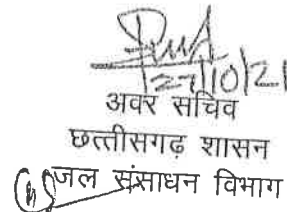 27/10/21
अवर सचिव
छत्तीसगढ़ शासन
जल संसाधन विभाग